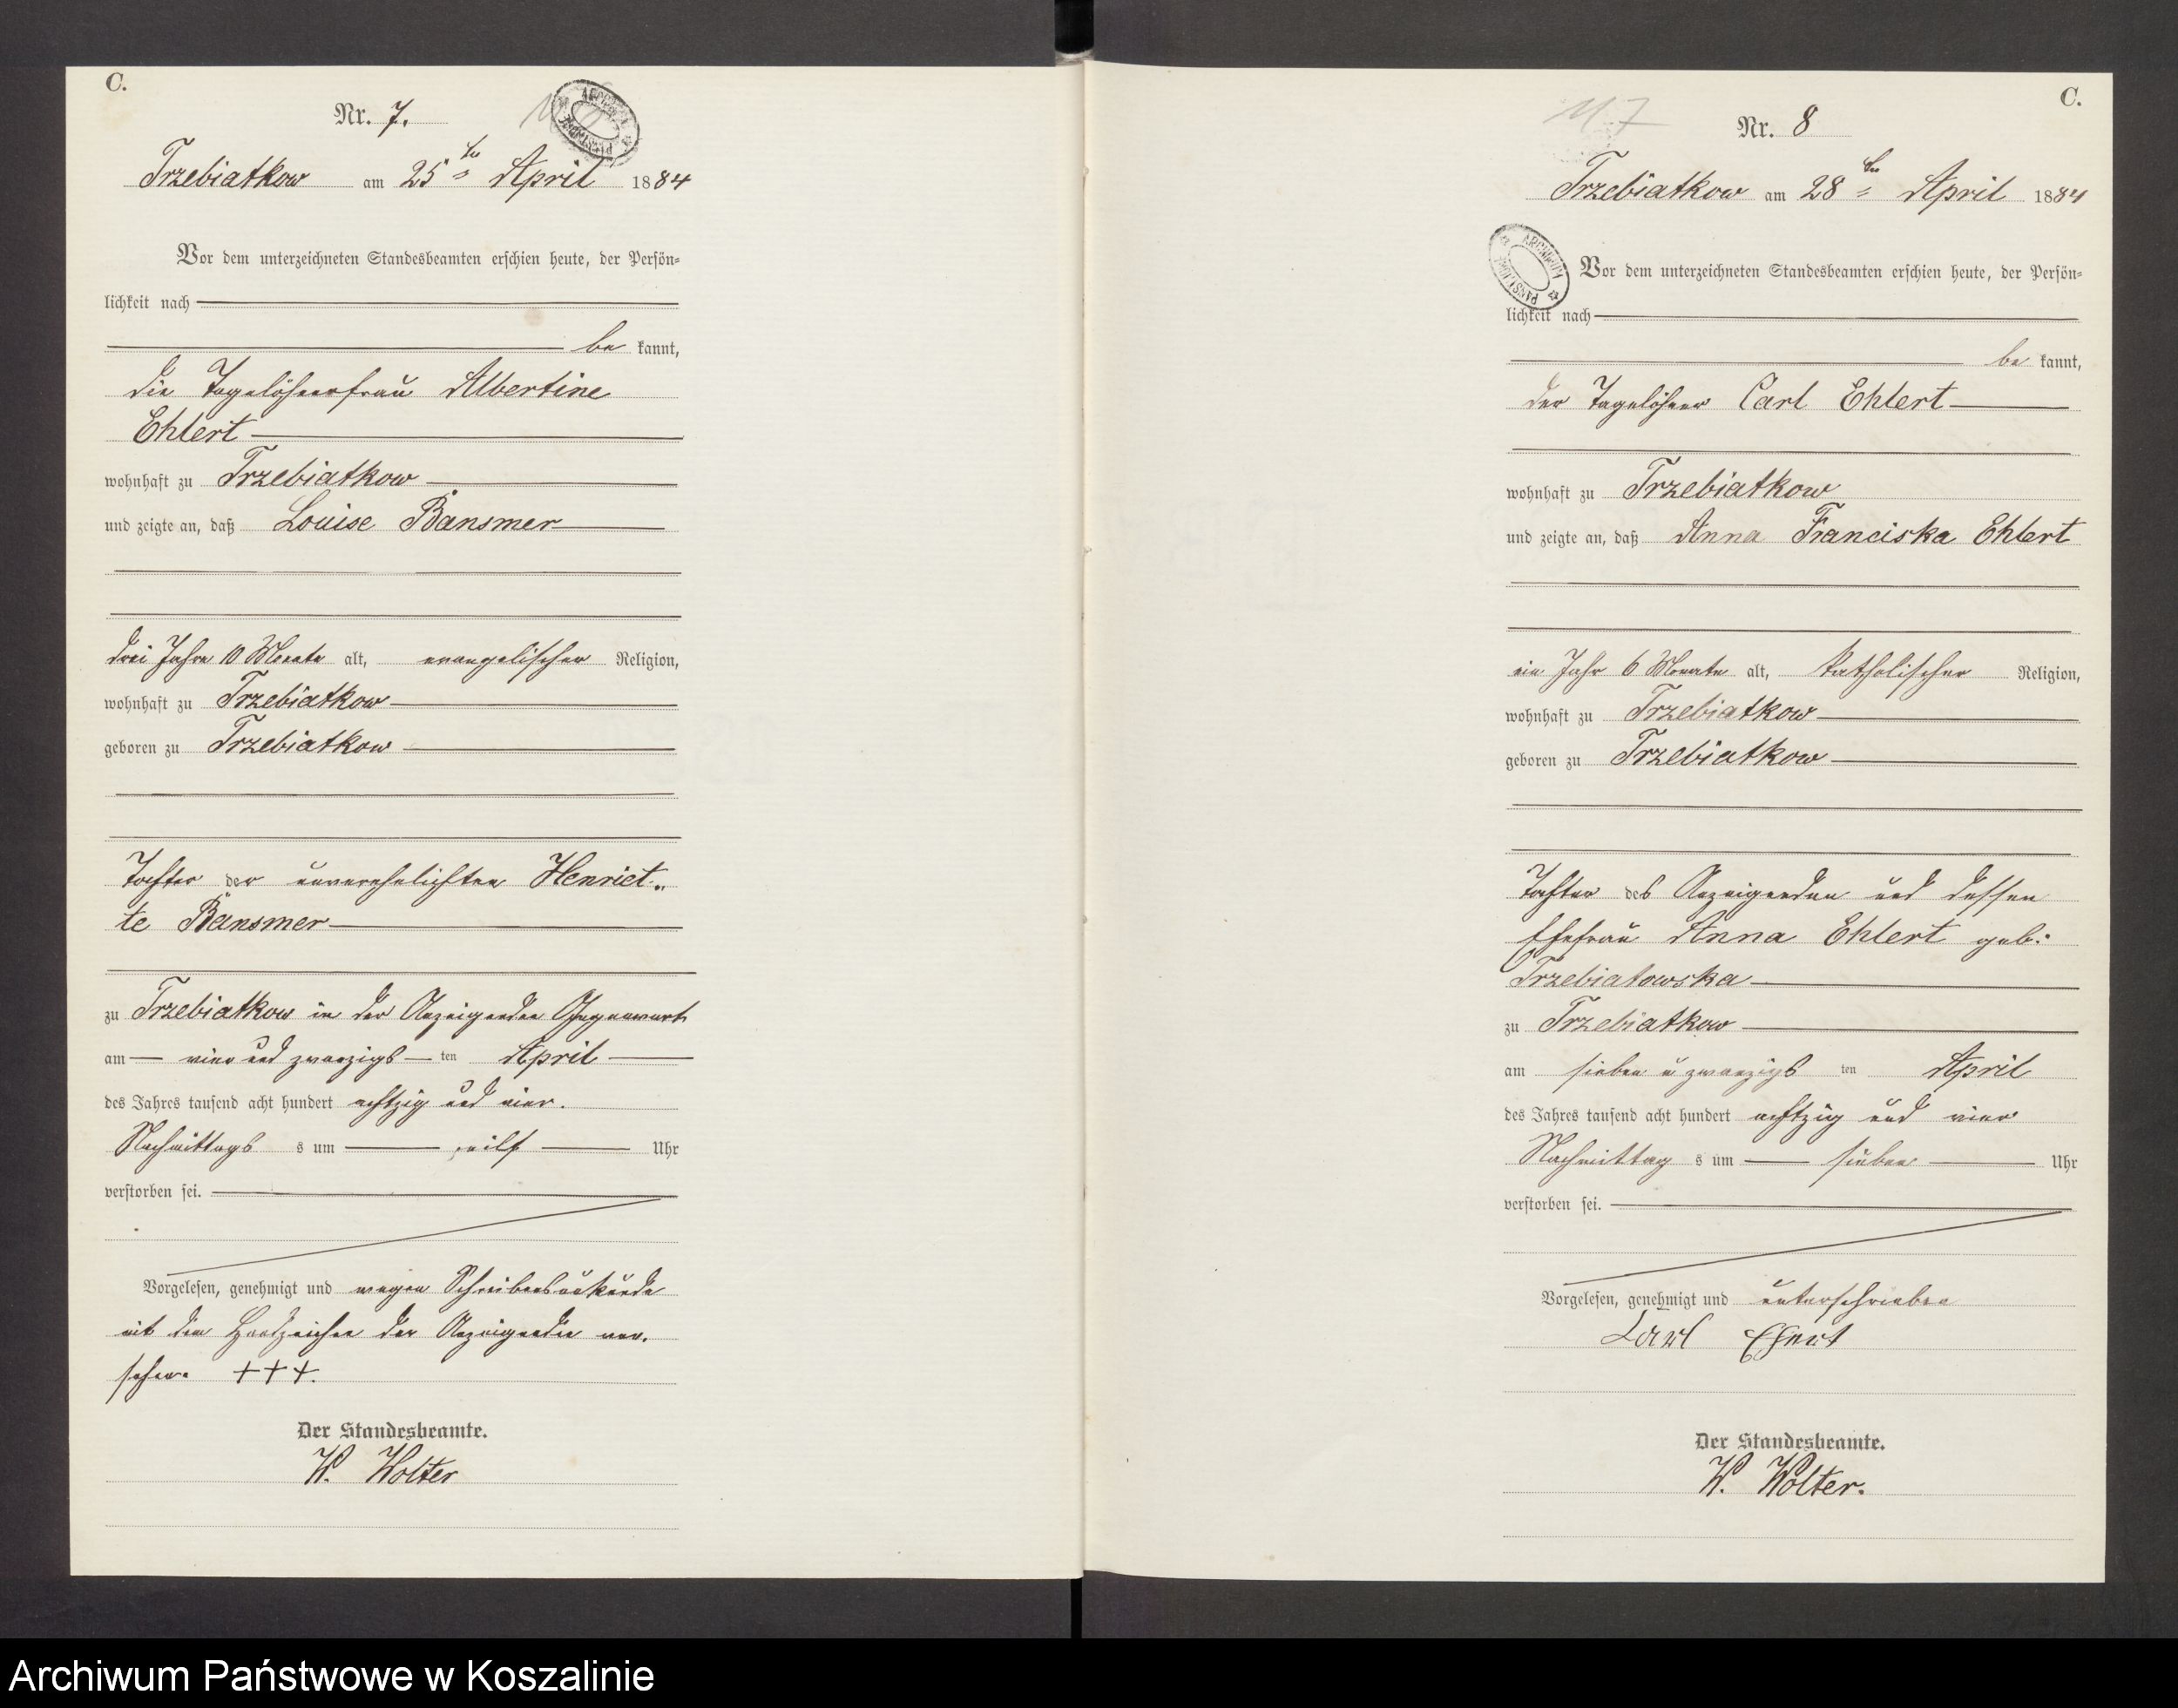 C.
Nr. 7.
Trzebiatkow am 25ten April 1884
Vor dem unterzeichneten Standesbeamten erschien heute, der Persön-
lichkeit nach
be kannt,
die Tagelöhnerfrau Albertine
Ehlert
wohnhaft zu Trzebiatkow
und zeigte an, daß Louise Bansmer
drei Jahre 10 Monate alt, evangelischer Religion,
wohnhaft zu Trzebiatkow
geboren zu Trzebiatkow
Tochter der unverehelichten Henriet-
te Bansmer
zu Trzebiatkow in der Anzeigenden Gegenwart
am vier und zwanzigs ten April
des Jahres tausend acht hundert achtzig und vier.
Nachmittags s um eilf Uhr
verstorben sei.
Vorgelesen, genehmigt und wegen Schreibensunkunde
mit dem Handzeichen der Anzeigenden ver-
sehen. +++.
Der Standesbeamte.
W. Wolter
C.
117
Nr. 8
Trzebiatkow am 28ten April 1884
ARCHIWUM PAŃSTWOWE
Vor dem unterzeichneten Standesbeamten erschien heute, der Persön-
lichkeit nach
be kannt,
der Tagelöhner Carl Ehlert
wohnhaft zu Trzebiatkow
und zeigte an, daß Anna Franciska Ehlert
ein Jahr 6 Monate alt, katholischer Religion,
wohnhaft zu Trzebiatkow
geboren zu Trzebiatkow
Tochter des Anzeigenden und dessen
Ehefrau Anna Ehlert geb:
Trzebiatowska
zu Trzebiatkow
am sieben u zwanzigs ten April
des Jahres tausend acht hundert achtzig und vier
Nachmittag s um sieben Uhr
verstorben sei.
Vorgelesen, genehmigt und unterschrieben
Carl Ehlert
Der Standesbeamte.
W. Wolter.
Archiwum Państwowe w Koszalinie